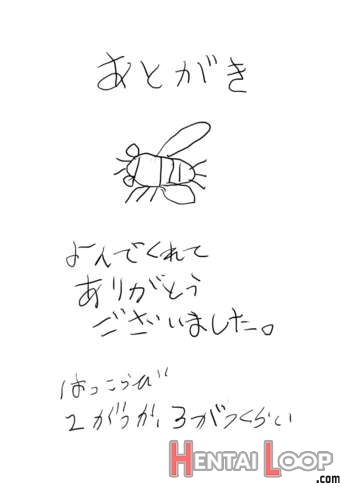 あとがき
よんでくれて
ありがとう
ございました。
はっこうび
2がつか、3がつくらい
HENTAI LOOP
.com